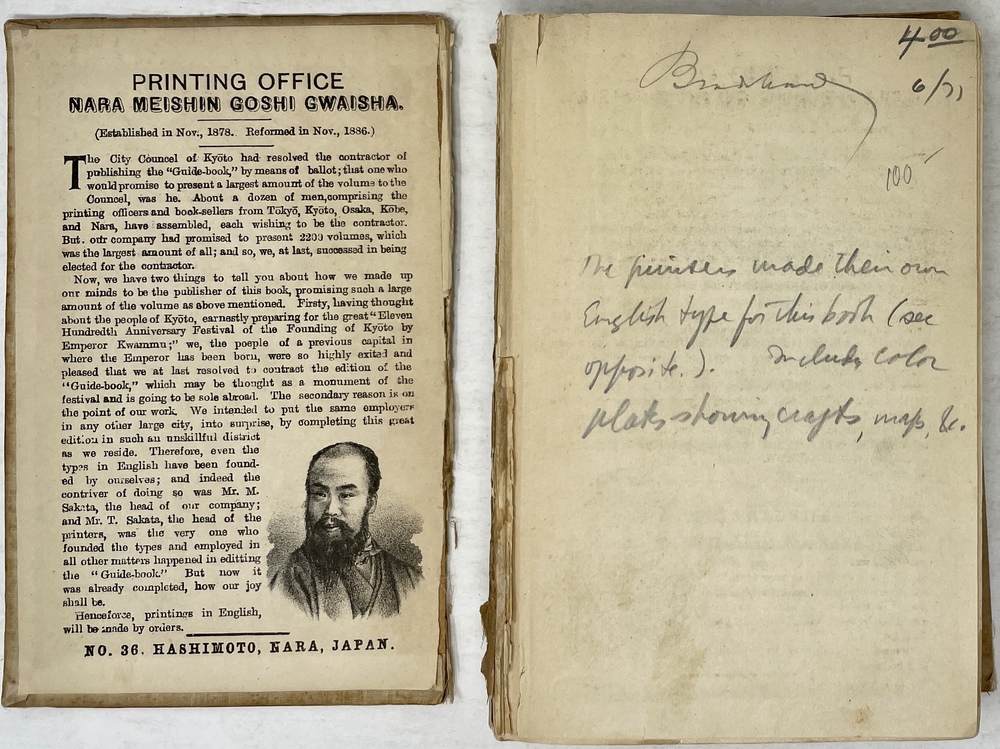 PRINTING OFFICE
NARA MEISHIN GOSHI GWAISHA.
(Established in Nov., 1878. Reformed in Nov., 1886.)
The City Councel of Kyōto had resolved the contractor of
publishing the "Guide-book," by means of ballot; that one who
would promise to present a largest amount of the volume to the
Councel, was he. About a dozen of men, comprising the
printing officers and book-sellers from Tōkyō, Kyōto, Osaka, Kōbe,
and Nara, have assembled, each wishing to be the contractor.
But. our company had promised to present 2200 volumes, which
was the largest amount of all; and so, we, at last, successed in being
elected for the contractor.
Now, we have two things to tell you about how we made up
our minds to be the publisher of this book, promising such a large
amount of the volume as above mentioned. Firsty, having thought
about the people of Kyōto, earnestly preparing for the great "Eleven
Hundredth Anniversary Festival of the Founding of Kyōto by
Emperor Kwammu;" we, the poeple of a previous capital in
where the Emperor has been born, were so highly exited and
pleased that we at last resolved to contract the edition of the
"Guide-book," which may be thought as a monument of the
festival and is going to be sole abroad. The secondary reason is on
the point of our work. We intended to put the same employers
in any other large city, into surprise, by completing this great
edition in such an unskillful district
as we reside. Therefore, even the
types in English have been found-
ed by ourselves; and indeed the
contriver of doing so was Mr. M.
Sakata, the head of our company;
and Mr. T. Sakata, the head of the
printers, was the very one who
founded the types and employed in
all other matters happened in editting
the "Guide-book." But now it
was already completed, how our joy
shall be.
Henceforce, printings in English,
will be made by orders.
NO. 36. HASHIMOTO, NARA, JAPAN.
4.00
6/71
100
The printers made their own
English type for this book (see
opposite.). Includes color
plates showing crafts, maps, &c.